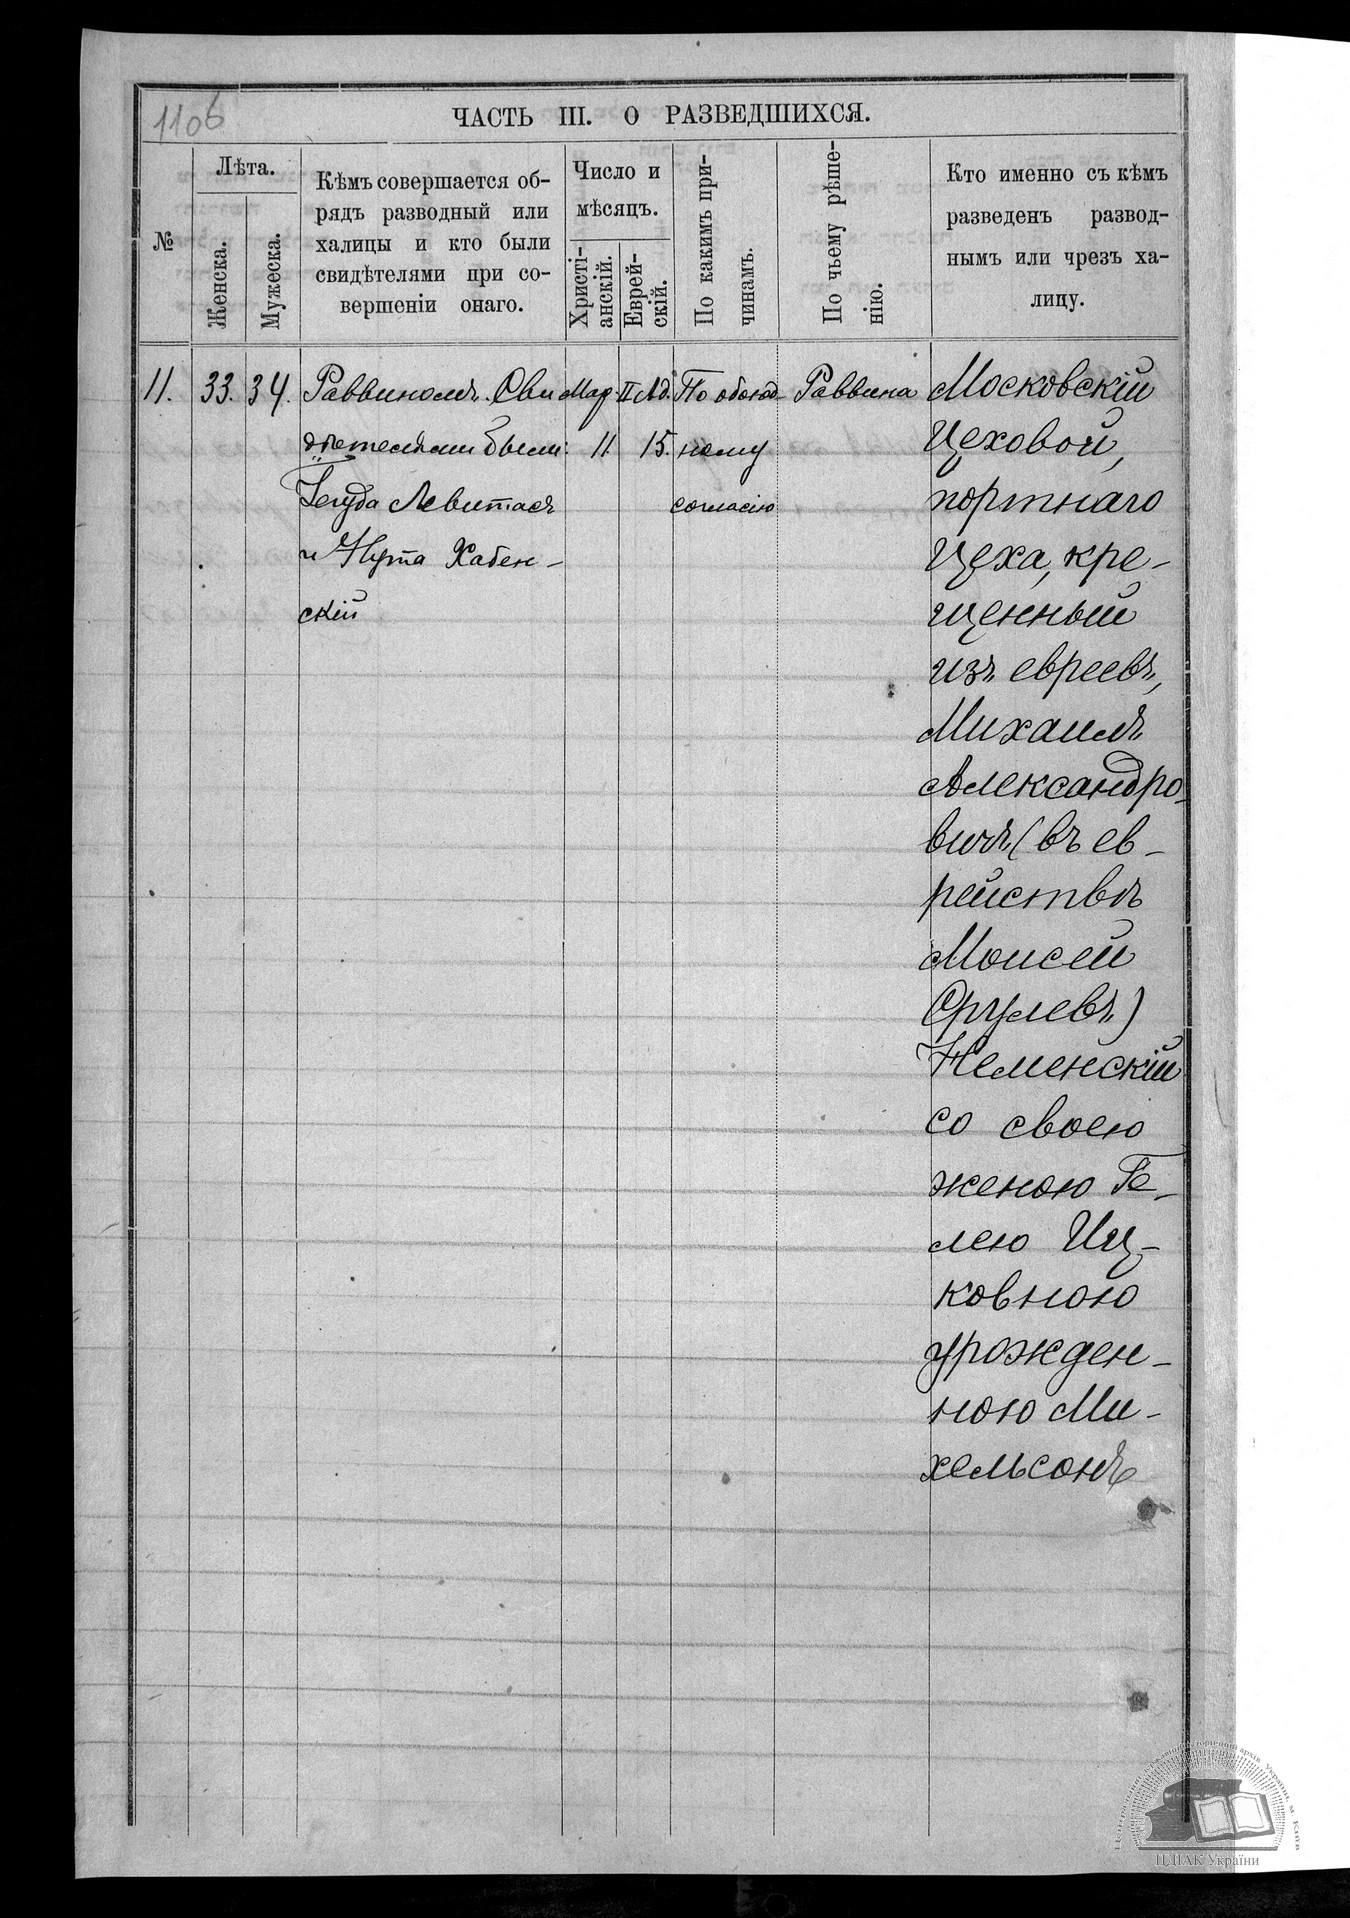 1106
ЧАСТЬ III. О РАЗВЕДШИХСЯ.
№
Лѣта.
Женска.
Мужеска.
Кѣмъ совершается об-
рядъ разводный или
халицы и кто были
свидѣтелями при со-
вершеніи онаго.
Число и
мѣсяцъ.
Христі-
анскій.
Еврей-
скій.
По какимъ при-
чинамъ.
По чьему рѣше-
нію.
Кто именно съ кѣмъ
разведенъ развод-
нымъ или чрезъ ха-
лицу.
11.
33.
34.
Раввиномъ. Сви
дѣтелями были:
Іегуда Левитасъ
и Нута Хабен-
скій
Мар.
11.
II Ад.
15.
По обоюд-
ному
согласію
Раввина
Московскій
цеховой,
портнаго
цеха, кре-
щенный
изъ евреевъ,
Михаилъ
Александро-
вичъ (въ ев-
рействѣ
Моисей
Срулевъ)
Неменскій
со своею
женою Ге-
лею Иц-
ковною
урожден-
ною Ми-
хельсонъ
Центральний державний історичний архів України, м. Київ
ЦДІАК України